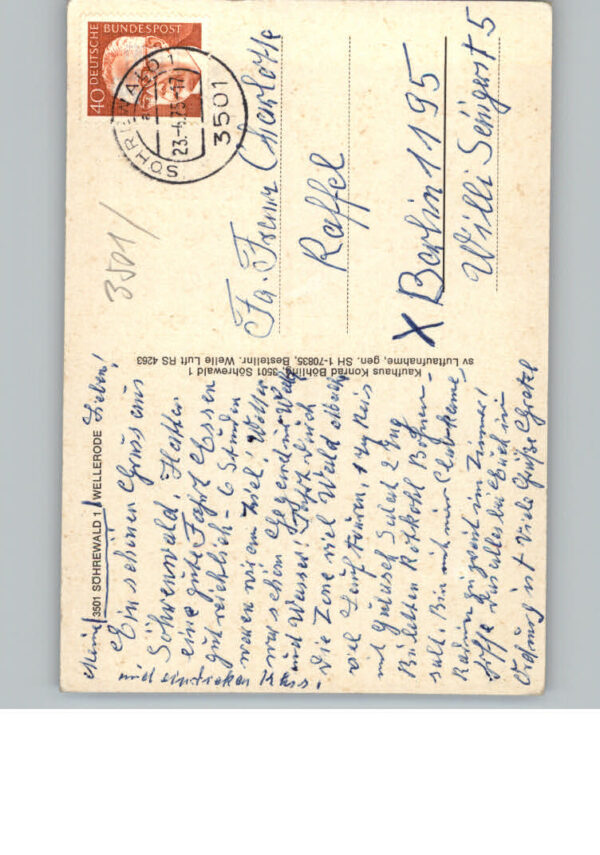 DEUTSCHE BUNDESPOST
40
SÖHREWALD 1
23.-4.75-17
3501
3501/
3501 SÖHREWALD 1 / WELLERODE
Meine Lieben!
Ein schönen Gruss aus
Söhrenwald. Hatten
eine gute Fahrt. Essen
gut reichlich - 6 Stunden
waren wir am Ziel! Wetter
war schön Gegend nur Wald
und Wasser! Fahrt durch
Die Zone viel Wald
viel
mit Gulasch Salat 2 Tag
Buletten Rotkohl Bohnen-
salat. Bin mit
zusammen im Zimmer!
Hoffe das alles bei Euch in
Ordnung ist Viele Grüße Gretel
und ein dicken Kuss.
Kaufhaus Konrad Böhling, 3501 Söhrewald 1
sv Luftaufnahme, gen. SH 1-70835, Bestellnr. Welle Luft RS 4263
Fa. Franz Charlotte
Raffel
X Berlin 1195
Willi Sänger St 5